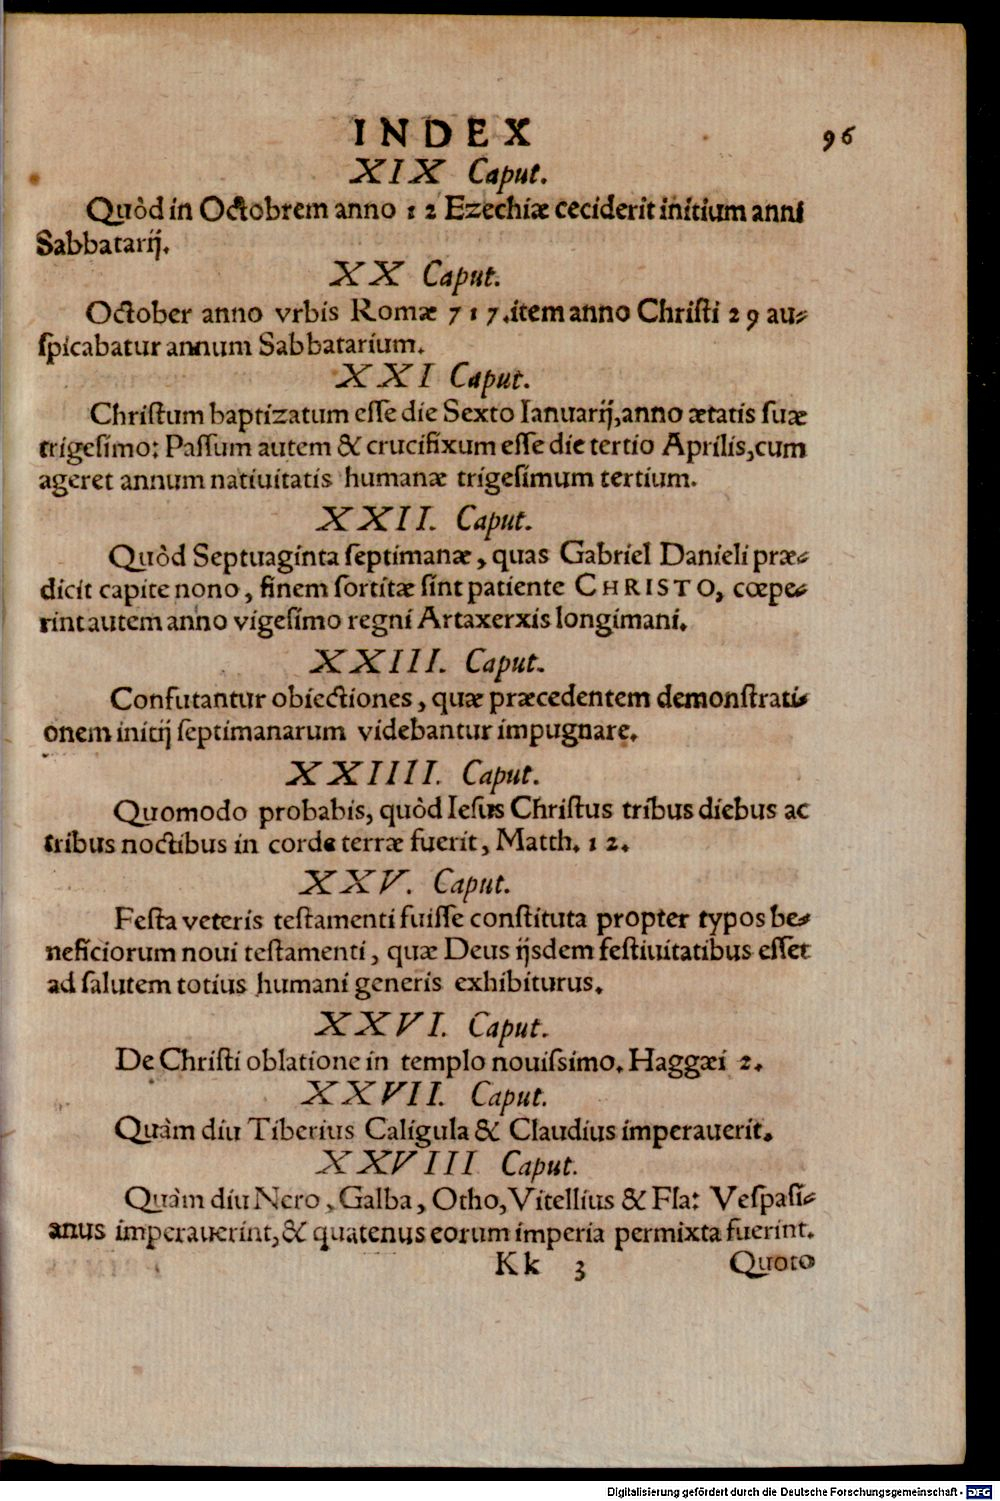 INDEX 96
XIX Caput.
Quòd in Octobrem anno 12 Ezechiæ ceciderit initium anni
Sabbatarij.
XX Caput.
October anno vrbis Romæ 717. item anno Christi 29 au-
spicabatur annum Sabbatarium.
XXI Caput.
Christum baptizatum esse die Sexto Ianuarij, anno ætatis suæ
trigesimo: Passum autem & crucifixum esse die tertio Aprilis, cum
ageret annum natiuitatis humanæ trigesimum tertium.
XXII. Caput.
Quòd Septuaginta septimanæ, quas Gabriel Danieli præ-
dicit capite nono, finem sortitæ sint patiente CHRISTO, cœpe-
rint autem anno vigesimo regni Artaxerxis longimani.
XXIII. Caput.
Confutantur obiectiones, quæ præcedentem demonstrati-
onem initij septimanarum videbantur impugnare.
XXIIII. Caput.
Quomodo probabis, quòd Iesus Christus tribus diebus ac
tribus noctibus in corde terræ fuerit, Matth. 12.
XXV. Caput.
Festa veteris testamenti fuisse constituta propter typos be-
neficiorum noui testamenti, quæ Deus ijsdem festiuitatibus esset
ad salutem totius humani generis exhibiturus.
XXVI. Caput.
De Christi oblatione in templo nouissimo. Haggæi 2.
XXVII. Caput.
Quàm diu Tiberius Caligula & Claudius imperauerit.
XXVIII Caput.
Quàm diu Nero, Galba, Otho, Vitellius & Fla: Vespasi-
anus imperauerint, & quatenus eorum imperia permixta fuerint.
Kk 3 Quoto
Digitalisierung gefördert durch die Deutsche Forschungsgemeinschaft - DFG